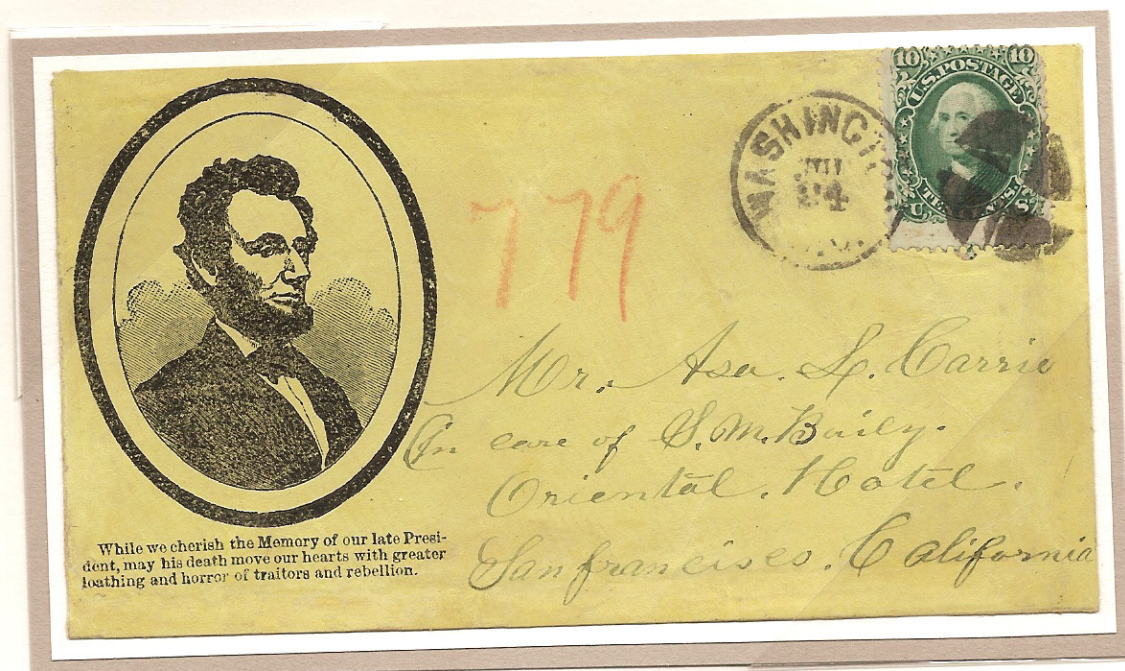 10 10
U.S. POSTAGE
U. S.
WASHINGT
24
779
Mr. Asa. L. Carrie
In care of S. M. Baily.
Oriental. Hotel.
San francisco. California
While we cherish the Memory of our late Presi-
dent, may his death move our hearts with greater
loathing and horror of traitors and rebellion.